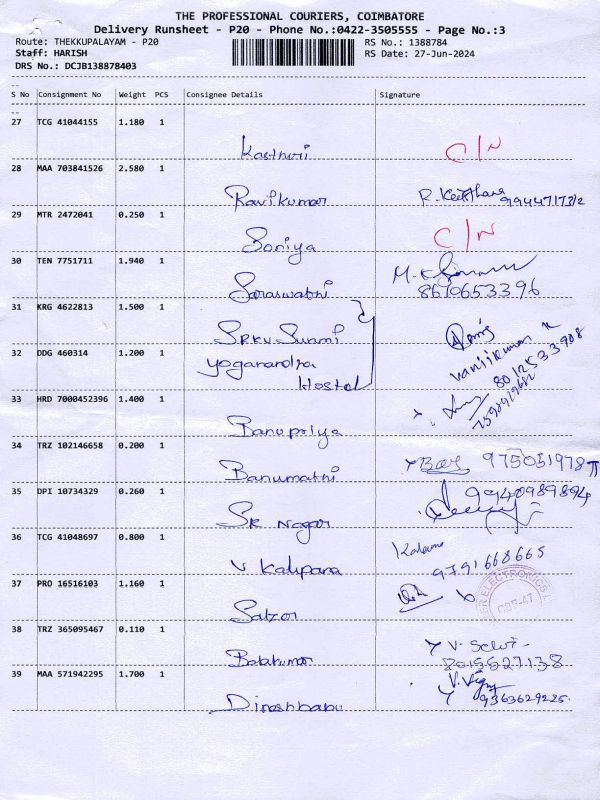 THE PROFESSIONAL COURIERS, COIMBATORE
Delivery Runsheet - P20 - Phone No.:0422-3505555 - Page No.:3
Route: THEKKUPALAYAM - P20
RS No.: 1388784
Staff: HARISH
RS Date: 27-Jun-2024
DRS No.: DCJB138878403
S No Consignment No Weight PCS Consignee Details Signature
27 TCG 41044155 1.180 1
Kasthuri C/N
28 MAA 703841526 2.580 1
Ravikumar R. Keerthana
29 MTR 2472041 0.250 1
Soniya C/N
30 TEN 7751711 1.940 1
Saraswathi 8610653396
31 KRG 4622813 1.500 1
SRKV Swami
32 DDG 460314 1.200 1
Yoganandha
Hostel
33 HRD 7000452396 1.400 1
Banupriya
34 TRZ 102146658 0.200 1
Banumathi
35 DPI 10734329 0.260 1
9940989894
SR Nagar
36 TCG 41048697 0.800 1
9791668665
V Kalipana
37 PRO 16516103 1.160 1
38 TRZ 365095467 0.110 1
V. Selvi
Balakumar 8015527138
39 MAA 571942295 1.700 1
9363629225
Dineshbabu